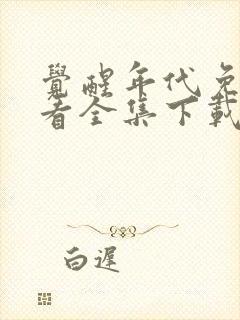 覺醒年代免
看全集下載
白遲